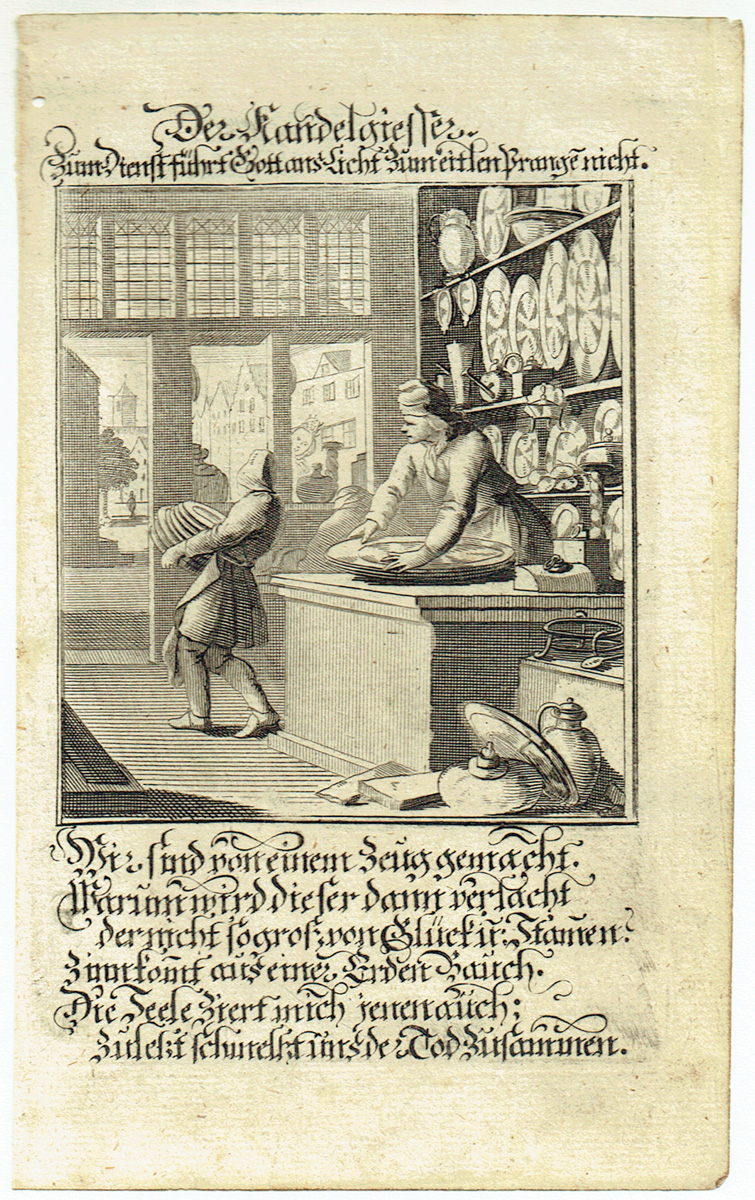 Der Kandelgiesser.
Zum Dienst führt Gott ans Licht Zum eitlen Prangē nicht.
Wir sind von einem Zeug gemacht.
Warum wird dieser dann verlacht
der nicht so groß von Glück ū: Namen?
Zinn kom̄t aus einer Erden Bauch.
Die Seele Ziert mich jenen auch;
Zulekt schmelkt uns der Tod Zusammen.